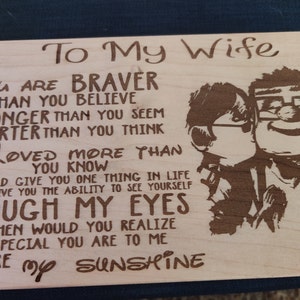 To My Wife
ARE BRAVER
THAN YOU BELIEVE
THAN YOU SEEM
THAN YOU THINK
LOVED MORE THAN
YOU KNOW
GIVE YOU ONE THING IN LIFE
YOU THE ABILITY TO SEE YOURSELF
MY EYES
WOULD YOU REALIZE
SPECIAL YOU ARE TO ME
MY SUNSHINE